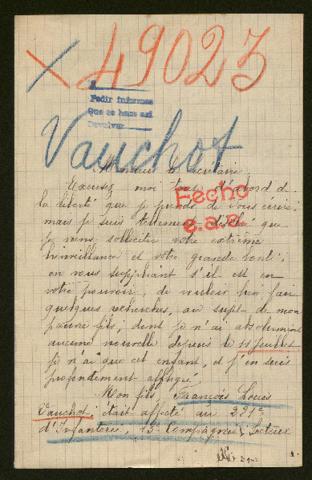 X 49023
Pedir informes
Que se hace así
Devolver
Vauchot
Monsieur le Secrétaire
Excusez moi tout d'abord de
la liberté que je prends de vous écrire
mais je suis tellement désolé que
je viens solliciter votre extrême
bienveillance et votre grande bonté,
en vous suppliant s'il est en
votre pouvoir, de vouloir bien faire
quelques recherches, au sujet de mon
pauvre fils, dont je n'ai absolument
aucune nouvelle depuis le
je n'ai que cet enfant, et j'en suis
profondément affligé
Fecho
e.a.a.
Mon fils François Louis
Vauchot était affecté au 221e
d'Infanterie, 13e Compagnie, Secteur